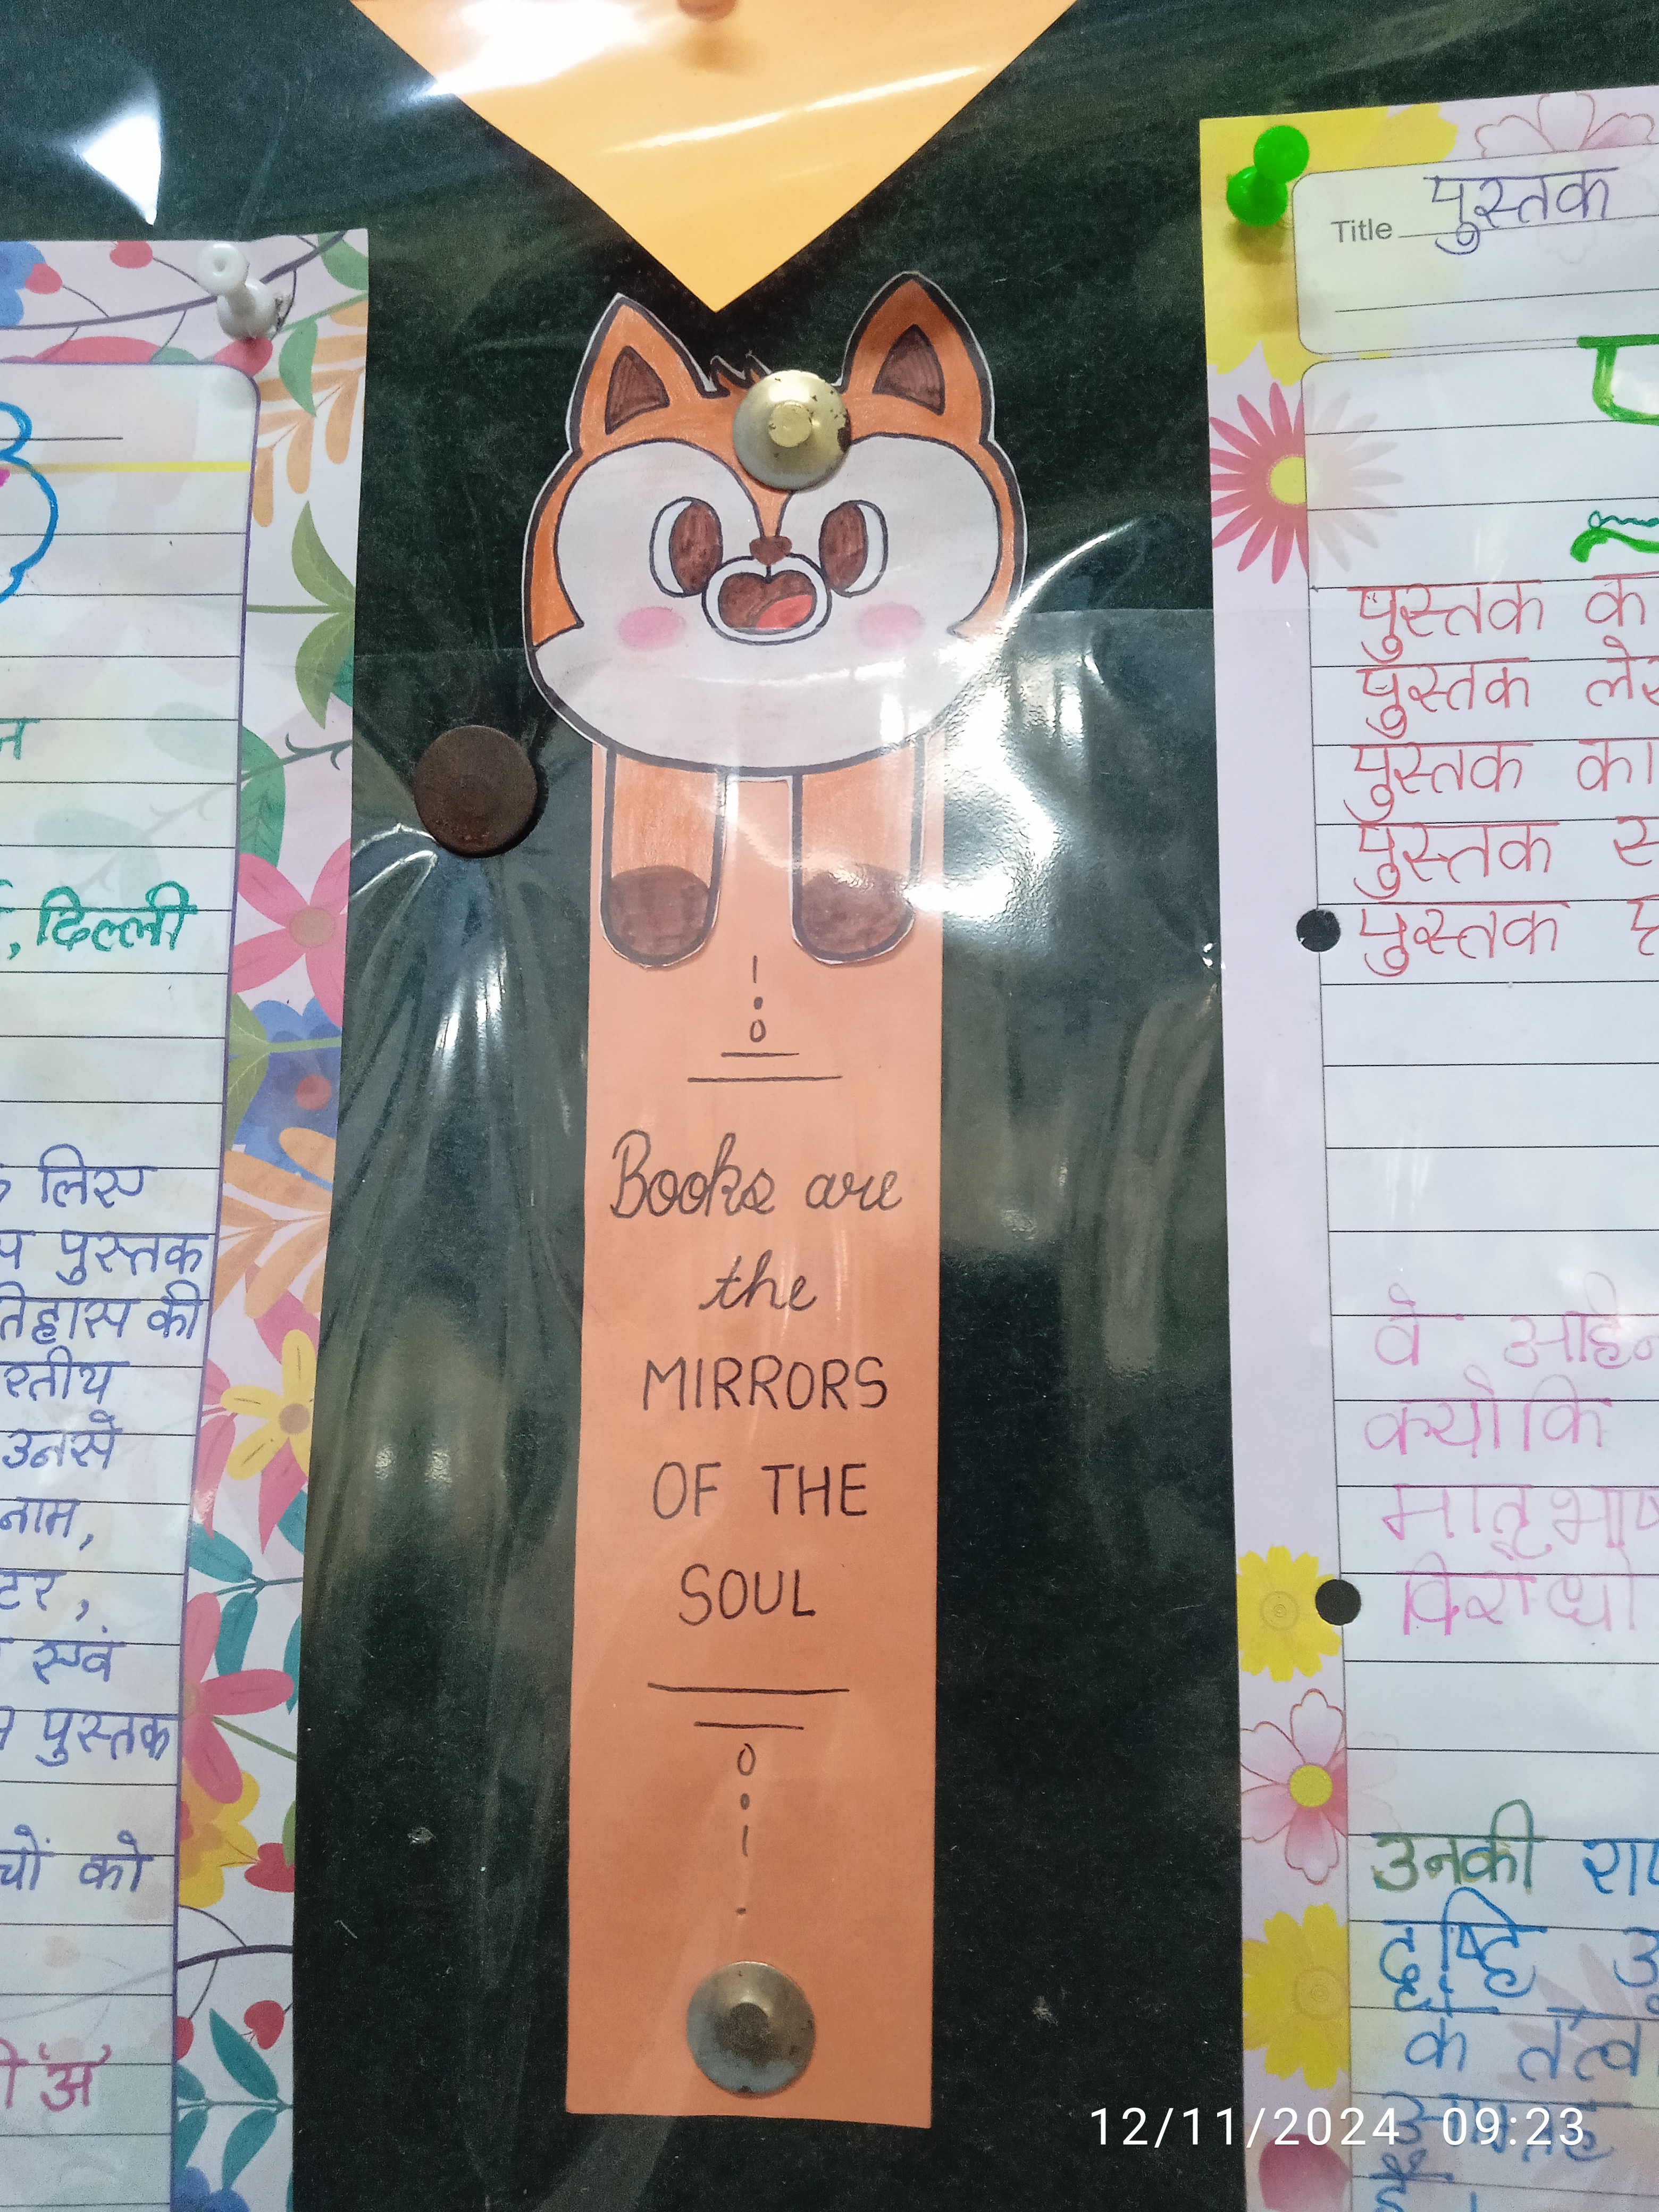 न
, दिल्ली
लिए
पुस्तक
तिहास की
रतीय
उनसे
नाम,
टर,
एवं
पुस्तक
चों को
'अ'
Books are
the
MIRRORS
OF THE
SOUL
Title पुस्तक
पुस्तक क
पुस्तक ले
पुस्तक का
पुस्तक स
पुस्तक
वे अहि
क्योकि
मातृभाष
विरोधी
उनकी रा
के तत्व
12/11/2024 09:23